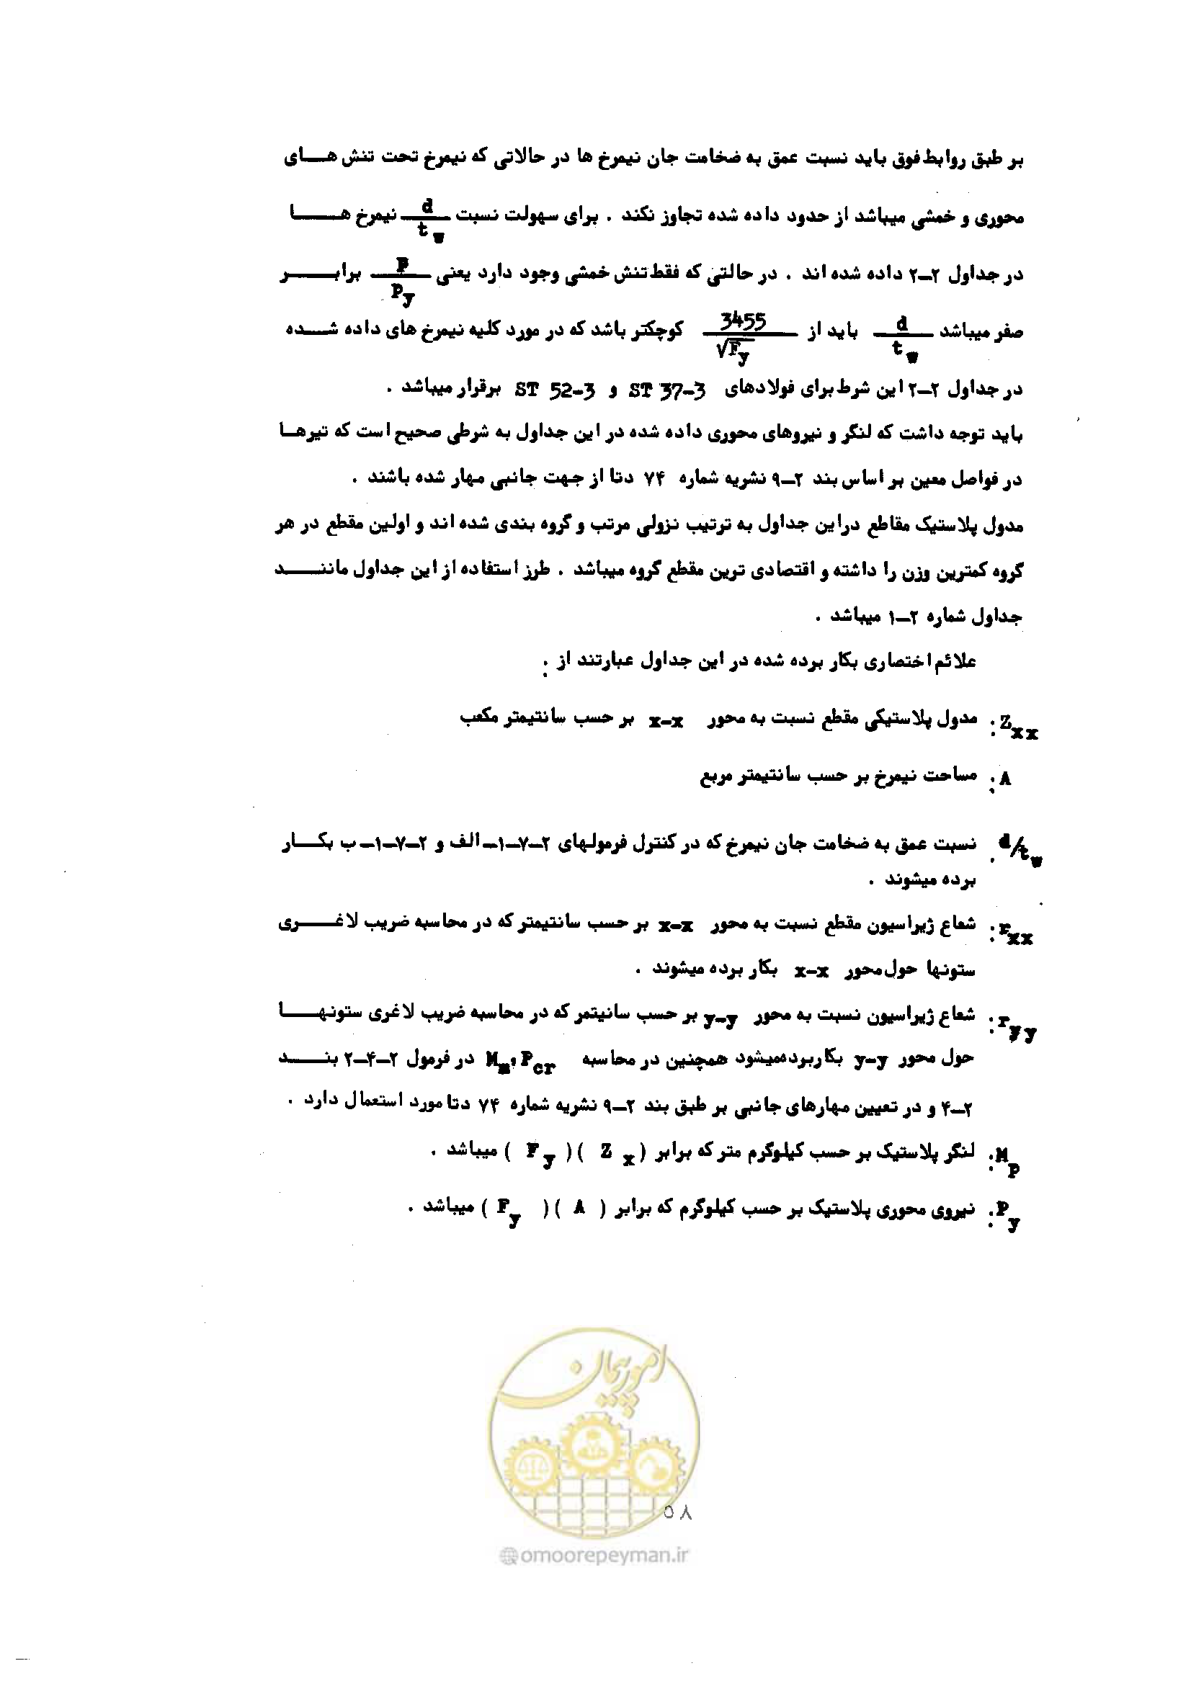 بر طبق روابط فوق باید نسبت عمق به ضخامت جان نیمرخ ها در حالاتی که نیمرخ تحت تنش هـــای
محوری و خمشی میباشد از حدود داده شده تجاوز نکند . برای سهولت نسبت d/t_w نیمرخ هـــــا
در جداول ۲-۲ داده شده اند . در حالتی که فقط تنش خمشی وجود دارد یعنی P/P_y برابـــــر
صفر میباشد d/t_w باید از 3455/√F_y کوچکتر باشد که در مورد کلیه نیمرخ های داده شـــده
در جداول ۲-۲ این شرط برای فولادهای ST 37-3 و ST 52-3 برقرار میباشد .
باید توجه داشت که لنگر و نیروهای محوری داده شده در این جداول به شرطی صحیح است که تیرهـــا
در فواصل معین بر اساس بند ۲-۹ نشریه شماره ۷۴ دتا از جهت جانبی مهار شده باشند .
مدول پلاستیک مقاطع در این جداول به ترتیب نزولی مرتب و گروه بندی شده اند و اولین مقطع در هر
گروه کمترین وزن را داشته و اقتصادی ترین مقطع گروه میباشد . طرز استفاده از این جداول ماننـــــد
جداول شماره ۲-۱ میباشد .
علائم اختصاری بکار برده شده در این جداول عبارتند از :
Z_xx : مدول پلاستیکی مقطع نسبت به محور x-x بر حسب سانتیمتر مکعب
A : مساحت نیمرخ بر حسب سانتیمتر مربع
d/t_w : نسبت عمق به ضخامت جان نیمرخ که در کنترل فرمولهای ۲-۷-۱- الف و ۲-۷-۱- ب بکـــار
برده میشوند .
r_xx : شعاع ژیراسیون مقطع نسبت به محور x-x بر حسب سانتیمتر که در محاسبه ضریب لاغـــــری
ستونها حول محور x-x بکار برده میشوند .
r_yy : شعاع ژیراسیون نسبت به محور y-y بر حسب سانیتمر که در محاسبه ضریب لاغری ستونهـــــا
حول محور y-y بکاربرده میشود همچنین در محاسبه M_m , P_cr در فرمول ۲-۴-۲ بنـــــد
۲-۴ و در تعیین مهارهای جانبی بر طبق بند ۲-۹ نشریه شماره ۷۴ دتا مورد استعمال دارد .
M_p : لنگر پلاستیک بر حسب کیلوگرم متر که برابر ( Z_x ) ( F_y ) میباشد .
P_y : نیروی محوری پلاستیک بر حسب کیلوگرم که برابر ( A ) ( F_y ) میباشد .
امور پیمان
۵۸
@omoorepeyman.ir